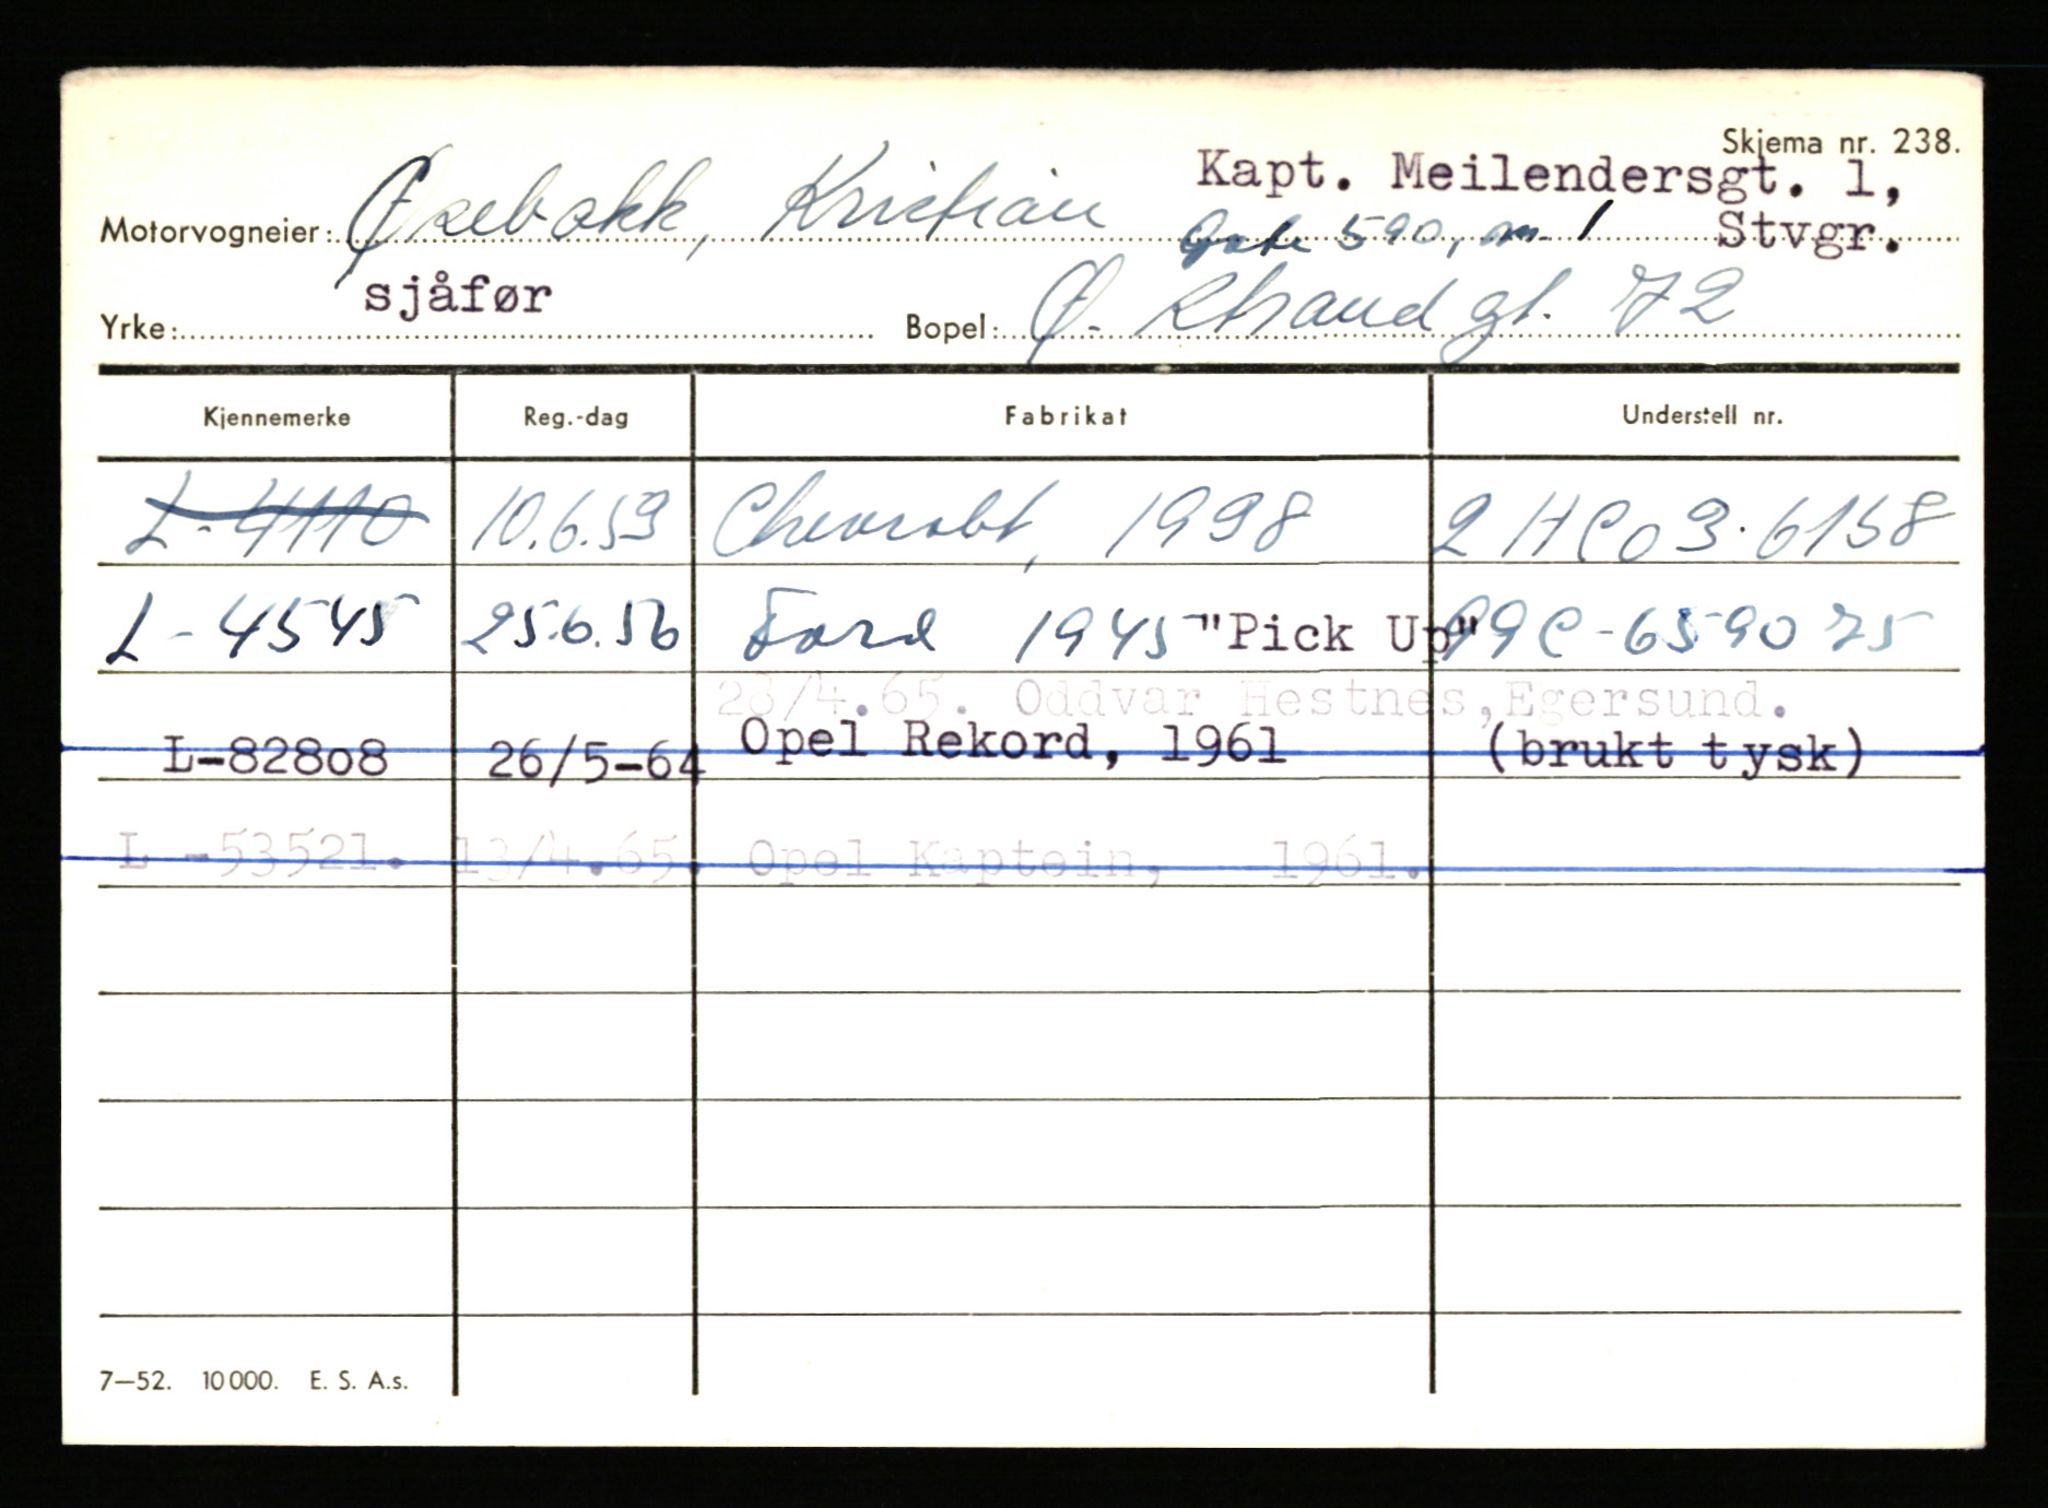 Skjema nr. 238.
Kapt. Meilendersgt. 1,
Motorvogneier: Øksebakk, Kristian Gate 590, nr. 1 Stvgr.
sjåfør
Yrke: Bopel: Ø. Strandgt. 72
Kjennemerke Reg.-dag Fabrikat Understell nr.
L-4110 10.6.53 Chevrolet, 1938 2 HC03-6158
L-4545 25.6.56 Ford 1945 "Pick Up" 99C-659075
28/4.65. Oddvar Hestnes, Egersund.
L-82808 26/5-64 Opel Rekord, 1961 (brukt tysk)
L -53521. 13/4.65. Opel Kaptein, 1961.
7—52. 10000. E. S. A.s.